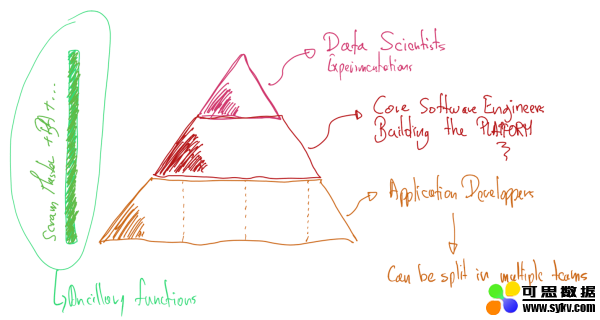 Data Scientists
Experimentations
Core Software Engineers
Building the PLATFORM
Application Developpers
Can be split in multiple teams
Scrum Master + BA + ...
Ancillary functions
可思数据
www.sykv.com